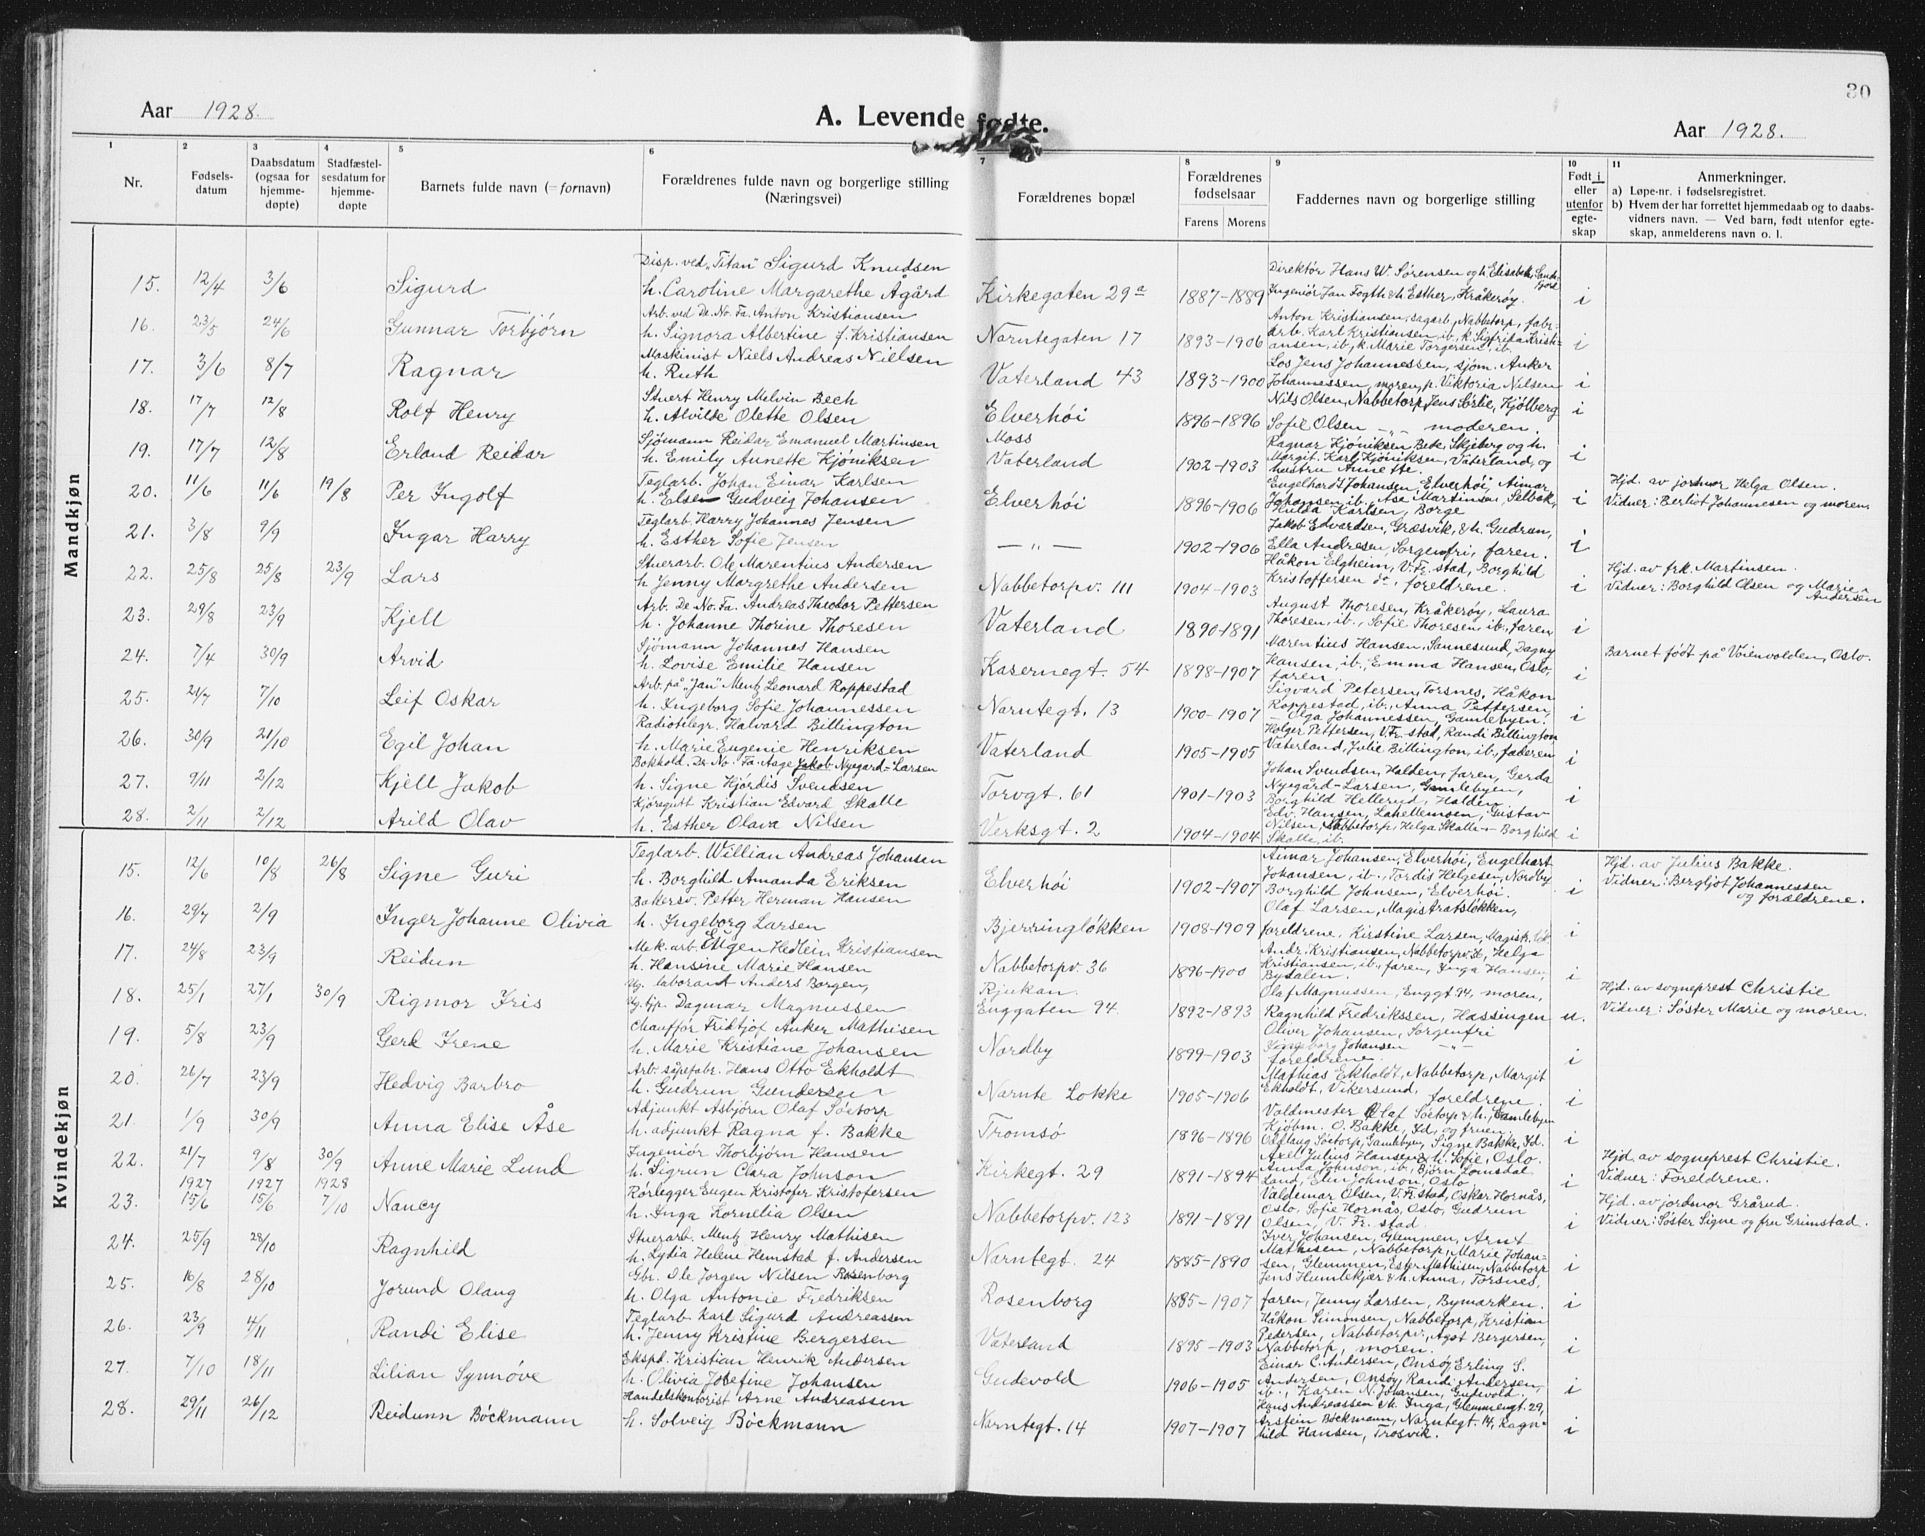 30
Aar 1928.
A. Levende fødte.
Aar 1928.
1 2 3 4 5 6 7 8 9 10 11
Nr.
Fødsels-
datum
Daabsdatum
(ogsaa for
hjemme-
døpte)
Stadfæstel-
sesdatum for
hjemme-
døpte
Barnets fulde navn (= fornavn)
Forældrenes fulde navn og borgerlige stilling
(Næringsvei)
Forældrenes bopæl
Forældrenes
fødselsaar
Farens Morens
Faddernes navn og borgerlige stilling
Født i
eller
utenfor
egte-
skap
Anmerkninger.
a) Løpe-nr. i fødselsregistret.
b) Hvem der har forrettet hjemmedaab og to daabs-
vidners navn. — Ved barn, født utenfor egte-
skap, anmelderens navn o. l.
Mandkjøn
Disp. ved "Titan" Sigurd Knudsen
Direktør Hans W. Sørensen og h. Elisabeth, Sande-
fjord
15. 12/4 3/6 Sigurd h. Caroline Margarethe Ågård Kirkegaten 29a 1887-1889 Ingeniør Jan Fogth & h Esther, Kråkerøy. i
Arb. ved De. No. Fa. Anton Kristiansen
Anton Kristiansen, sagarb, Nabbetorp, fabr.
16. 23/5 24/6 Gunnar Torbjørn h. Signora Albertine f. Kristiansen Narntegaten 17 1893-1906 arb. Karl Kristiansen ib, k. Sigfrida Kristi-
ansen, ib, k. Marie Torgersen, ib. i
Maskinist Niels Andreas Nielsen
Los Jens Johannessen, sjøm. Anker
17. 3/6 8/7 Ragnar h. Ruth Vaterland 43 1893-1900 Johannessen, moren, p. Viktoria Nilsen i
Stuert Henry Melvin Bech
Nils Olsen, Nabbetorp, Jens Sørlie, Kjølberg
18. 17/7 12/8 Rolf Henry h. Alvilde Olette Olsen Elverhöi 1896-1896 Sofie Olsen -"- moderen. i
Sjømann Reidar Emanuel Martinsen Moss
Ragnar Kjöniksen Bede, Skjeberg og h.
19. 17/7 12/8 Erland Reidar h. Emily Annette Kjöniksen Vaterland 1902-1903 Margit. Karl Kjöniksen, Vaterland, og
hustru Annette. i
Teglarb. Johan Einar Karlsen
Engelhardt Johansen, Elverhöi, Aimar
Hjd. av jordmor Helga Olsen.
20. 11/6 11/6 19/8 Per Ingolf h. Else Gudveig Johansen Elverhöi 1896-1906 Johansen, ib., Åse Martinsen, Selbak,
Hulda Karlsen, Borge i Vidner: Berliot Johannesen og moren.
Teglarb. Harry Johannes Jensen
Jakob Edvardsen, Græsvik, & h. Gudrun,
21. 3/8 9/9 Ingar Harry h. Esther Sofie Jensen -"- 1902-1906 Ella Andresen, Sorgenfri, faren. i
Stuerarb. Ole Marentius Andersen
Håkon Elgheim, V. Fr. stad, Borghild
Hjd. av frk. Martinsen.
22. 25/8 25/8 23/9 Lars h. Jenny Margrethe Andersen Nabbetorpv. 111 1904-1903 Kristoffersen do, foreldrene. i Vidner: Borghild Olsen og Marie
Andersen
Arb. De. No. Fa. Andreas Theodor Pettersen
August Thoresen, Kråkerøy, Laura
23. 29/8 23/9 Kjell h. Johanne Thorine Thoresen Vaterland 1890-1891 Thoresen, ib., Sofie Thoresen, ib., faren i
Sjömann Johannes Hansen
Marentius Hansen, Sannesund, Dagny
Barnet født på Voienvolden, Oslo.
24. 7/4 30/9 Arvid h. Lovise Emilie Hansen Kasernegt. 54 1898-1907 Hansen, ib., Emma Hansen, Oslo,
faren. i
Arb. på "Jan" Mentz Leonard Roppestad
Sigvard Petersen, Torsnes, Håkon
25. 21/7 7/10 Leif Oskar h. Ingeborg Sofie Johannessen Narntegt. 13 1900-1907 Roppestad, ib., Anna Pettersen,
- Olga Johannessen, Gamlebyen. i
Radiotelegr. Halvard Billington
Holger Pettersen, V. Fr. stad, Randi Billington
26. 30/9 21/10 Egil Johan h. Marie Eugenie Henriksen Vaterland 1905-1905 Vaterland, Julie Billington, ib., faderen i
Bokhold. De. No. Fa. Aage Jakob Nygård-Larsen
Johan Svendsen, Halden, faren, Gerda
27. 9/11 2/12 Kjell Jakob h. Signe Hjördis Svendsen Torvgt. 61 1901-1903 Nygård-Larsen, Gamlebyen,
Borghild Hellerud, Halden i
Kjøregutt Kristian Edvard Skalle
Edv. Hansen, Lahellemoen, Gustav
28. 2/11 2/12 Arild Olav h. Esther Olava Nilsen Verksgt. 2 1904-1904 Nilsen, Nabbetorp, Helga Skalle - Borghild
Skalle, ib. i
Kvindekjøn
Teglarb. Willian Andreas Johansen
Aimar Johansen, Elverhöi, Engelhart
Hjd. av Julius Bakke.
15. 12/6 10/8 26/8 Signe Guri h. Borghild Amanda Eriksen Elverhöi 1902-1907 Johansen, ib., Tordis Helgesen, Nordby
Borghild Johnsen, Elverhöi. i Vidner: Bergljot Johannessen
og forældrene.
Bakersv. Petter Herman Hansen
Olaf Larsen, Magistratsløkken,
16. 29/7 2/9 Inger Johanne Olivia h. Ingeborg Larsen Bjerringløkken 1908-1909 foreldrene, Kirstine Larsen, i
Mek. arb Eugen Hedlein Kristiansen
Andr. Kristiansen, Nabbetorpv. 36, Helga
17. 24/8 23/9 Reidun h. Hansine Marie Hansen Nabbetorpv. 36 1896-1900 Kristiansen, ib., faren, Inga Hansen,
Bydalen. i
Ug. laborant Anders Borgen, Rjukan.
Olaf Magnussen, Enggt 94, moren,
Hjd. av sogneprest Christie
18. 25/1 27/1 30/9 Rigmor Iris Ug. tjp. Dagmar Magnussen Enggaten 94. 1892-1893 Ragnhild Fredrikssen, Hassingen u. Vidner: Søster Marie og moren.
Chauffør Fridtjof Anker Mathisen
Oliver Johansen, Sorgenfri
19. 5/8 23/9 Gerd Irene h. Marie Kristiane Johansen Nordby 1899-1903 Ingeborg Johansen -"-
foreldrene. i
Arb. såpefabr. Hans Otto Ekholdt
Mathias Ekholdt, Nabbetorp, Margit
20. 26/7 23/9 Hedvig Barbro h. Gudrun Gundersen Narnte Løkke 1905-1906 Ekholdt, Vikersund,
foreldrene. i
Adjunkt Asbjörn Olaf Söetorp
Valdmester Olaf Söetorp & h., Gamlebyen
21 1/9 30/9 Anna Elise Åse h. adjunkt Ragna f. Bakke Tromsø 1896-1896 Kjøbm. O. Bakke, Id. og fruen,
Söetorp, Gamlebyen, Signe Bakke, Id. i
Ingeniør Thorbjörn Hansen
Axel Julius Hansen & h. Sofie, Oslo.
Hjd. av sogneprest Christie.
22. 21/7 9/8 30/9 Anne Marie Lund h. Sigrun Clara Johnson Kirkegt. 29 1891-1894 Anna Johnson, ib., Björn Lomsdal
Lund, Elin Johnson, Oslo, i Vidner: Foreldrene.
1927 1927 1928 Rørlegger Eugen Kristofer Kristofersen
Valdemar Olsen, V. Fr. stad, Oskar Hornås,
Hjd. av jordmor Grårud.
23. 15/6 15/6 7/10 Nancy h. Inga Kornelia Olsen Nabbetorpv. 123 1891-1891 Oslo, Sofie Hornås, Oslo, Gudrun
Olsen, V. Fr. stad. i Vidner: Søster Signe og fru Grimstad.
Stuerarb. Mentz Henry Mathisen
Iver Johansen, Glemmen, Arnt
24. 25/9 28/10 Ragnhild h. Lydia Helene Hemstad f. Andersen Narntegt. 24 1885-1890 Mathisen, Nabbetorp, Marie Johan-
sen, Glemmen, Ester Mathisen, Nabbetorp i
Gbr. Ole Jørgen Nilsen Rosenborg
Jens Humlekjær & h. Anna, Torsnes,
25. 16/8 28/10 Jorund Olaug h. Olga Antonie Fredriksen Rosenborg 1885-1907 faren, Jenny Larsen, Bymarken. i
Teglarb. Karl Sigurd Andreassen
Håkon Simonsen, Nabbetorp, Kristian
26. 23/9 4/11 Randi Elise h. Jenny Kristine Bergersen Vaterland 1895-1903 Pedersen, Nabbetorpv., Agot Bergersen,
Nabbetorp, moren. i
Ekspd. Kristian Henrik Andersen
Einar C. Andersen, Onsöy, Erling S.
27. 7/10 18/11 Lilian Synnöve h. Olivia Josefine Johansen Gudevold 1906-1905 Andersen, Onsöy, Randi Andersen,
ib., Karen N. Johansen, Gudevold. i
Handelskontorist Arne Andreassen
Hans Andreassen & h. Inga, Glemmengt. 29,
28. 29/11 26/12 Reidunn Böckmann h. Solveig Böckmann Narntegt. 14 1907-1907 Arstein Böckmann, Narntegt 14, Ragn-
hild Hansen, Trosvik. i